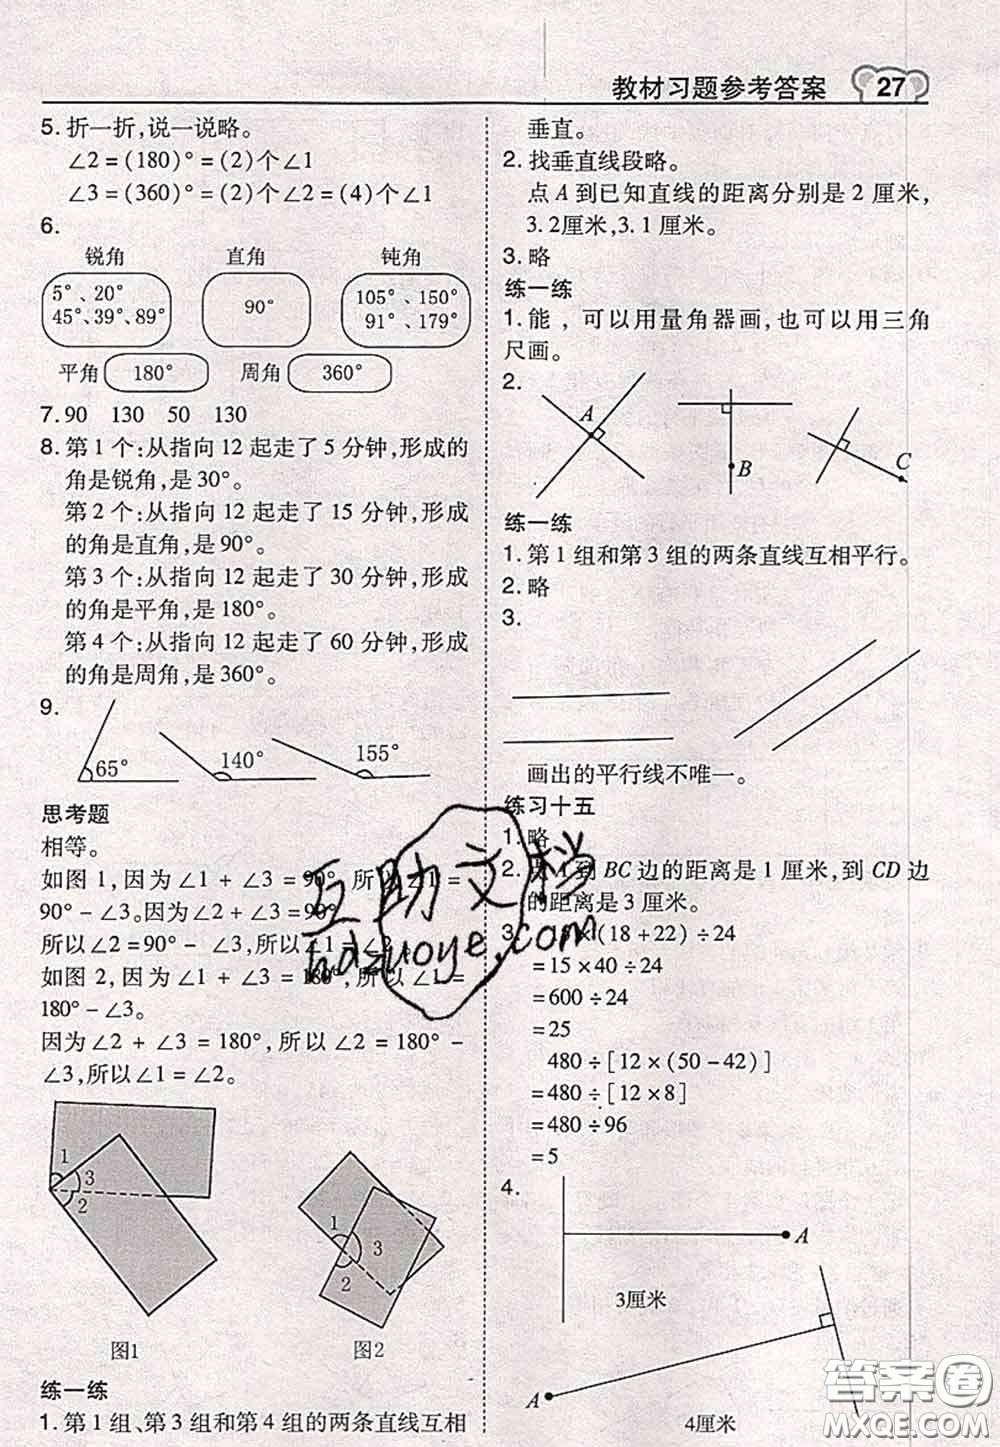 教材习题参考答案 27
5. 折一折,说一说略。
∠2=(180)°=(2)个∠1
∠3=(360)°=(2)个∠2=(4)个∠1
6.
锐角 直角 钝角
5°、20°
45°、39°、89°
90°
105°、150°
91°、179°
平角 180° 周角 360°
7. 90 130 50 130
8. 第1个:从指向12起走了5分钟,形成的
角是锐角,是30°。
第2个:从指向12起走了15分钟,形成
的角是直角,是90°。
第3个:从指向12起走了30分钟,形成
的角是平角,是180°。
第4个:从指向12起走了60分钟,形成
的角是周角,是360°。
9.
65° 140° 155°
思考题
相等。
如图1,因为∠1+∠3=90°,所以∠1=
90°-∠3。因为∠2+∠3=90°
所以∠2=90°-∠3,所以∠1=∠2。
如图2,因为∠1+∠3=180°,所以∠1=
180°-∠3。
因为∠2+∠3=180°,所以∠2=180°-
∠3,所以∠1=∠2。
1 3 2
图1
1 3 2
图2
练一练
1. 第1组、第3组和第4组的两条直线互相
垂直。
2. 找垂直线段略。
点A到已知直线的距离分别是2厘米,
3.2厘米,3.1厘米。
3. 略
练一练
1. 能,可以用量角器画,也可以用三角
尺画。
2.
A B C
练一练
1. 第1组和第3组的两条直线互相平行。
2. 略
3.
画出的平行线不唯一。
练习十五
1. 略
2. 点A到BC边的距离是1厘米,到CD边
的距离是3厘米。
3. ×(18+22)÷24
=15×40÷24
=600÷24
=25
480÷[12×(50-42)]
=480÷[12×8]
=480÷96
=5
4.
A
3厘米
A
4厘米
互助文档
hdzuoye.com
答案圈
MXQE.COM